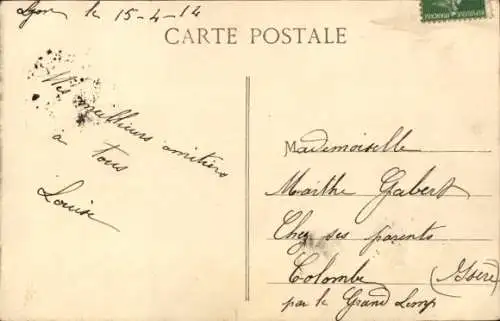 Lyon le 15-4-14
CARTE POSTALE
Mes meilleurs amitiés
à tous
Louise
Mademoiselle
Marthe Gabert
Chez ses parents
Colombe (Isère)
par le Grand Lemps